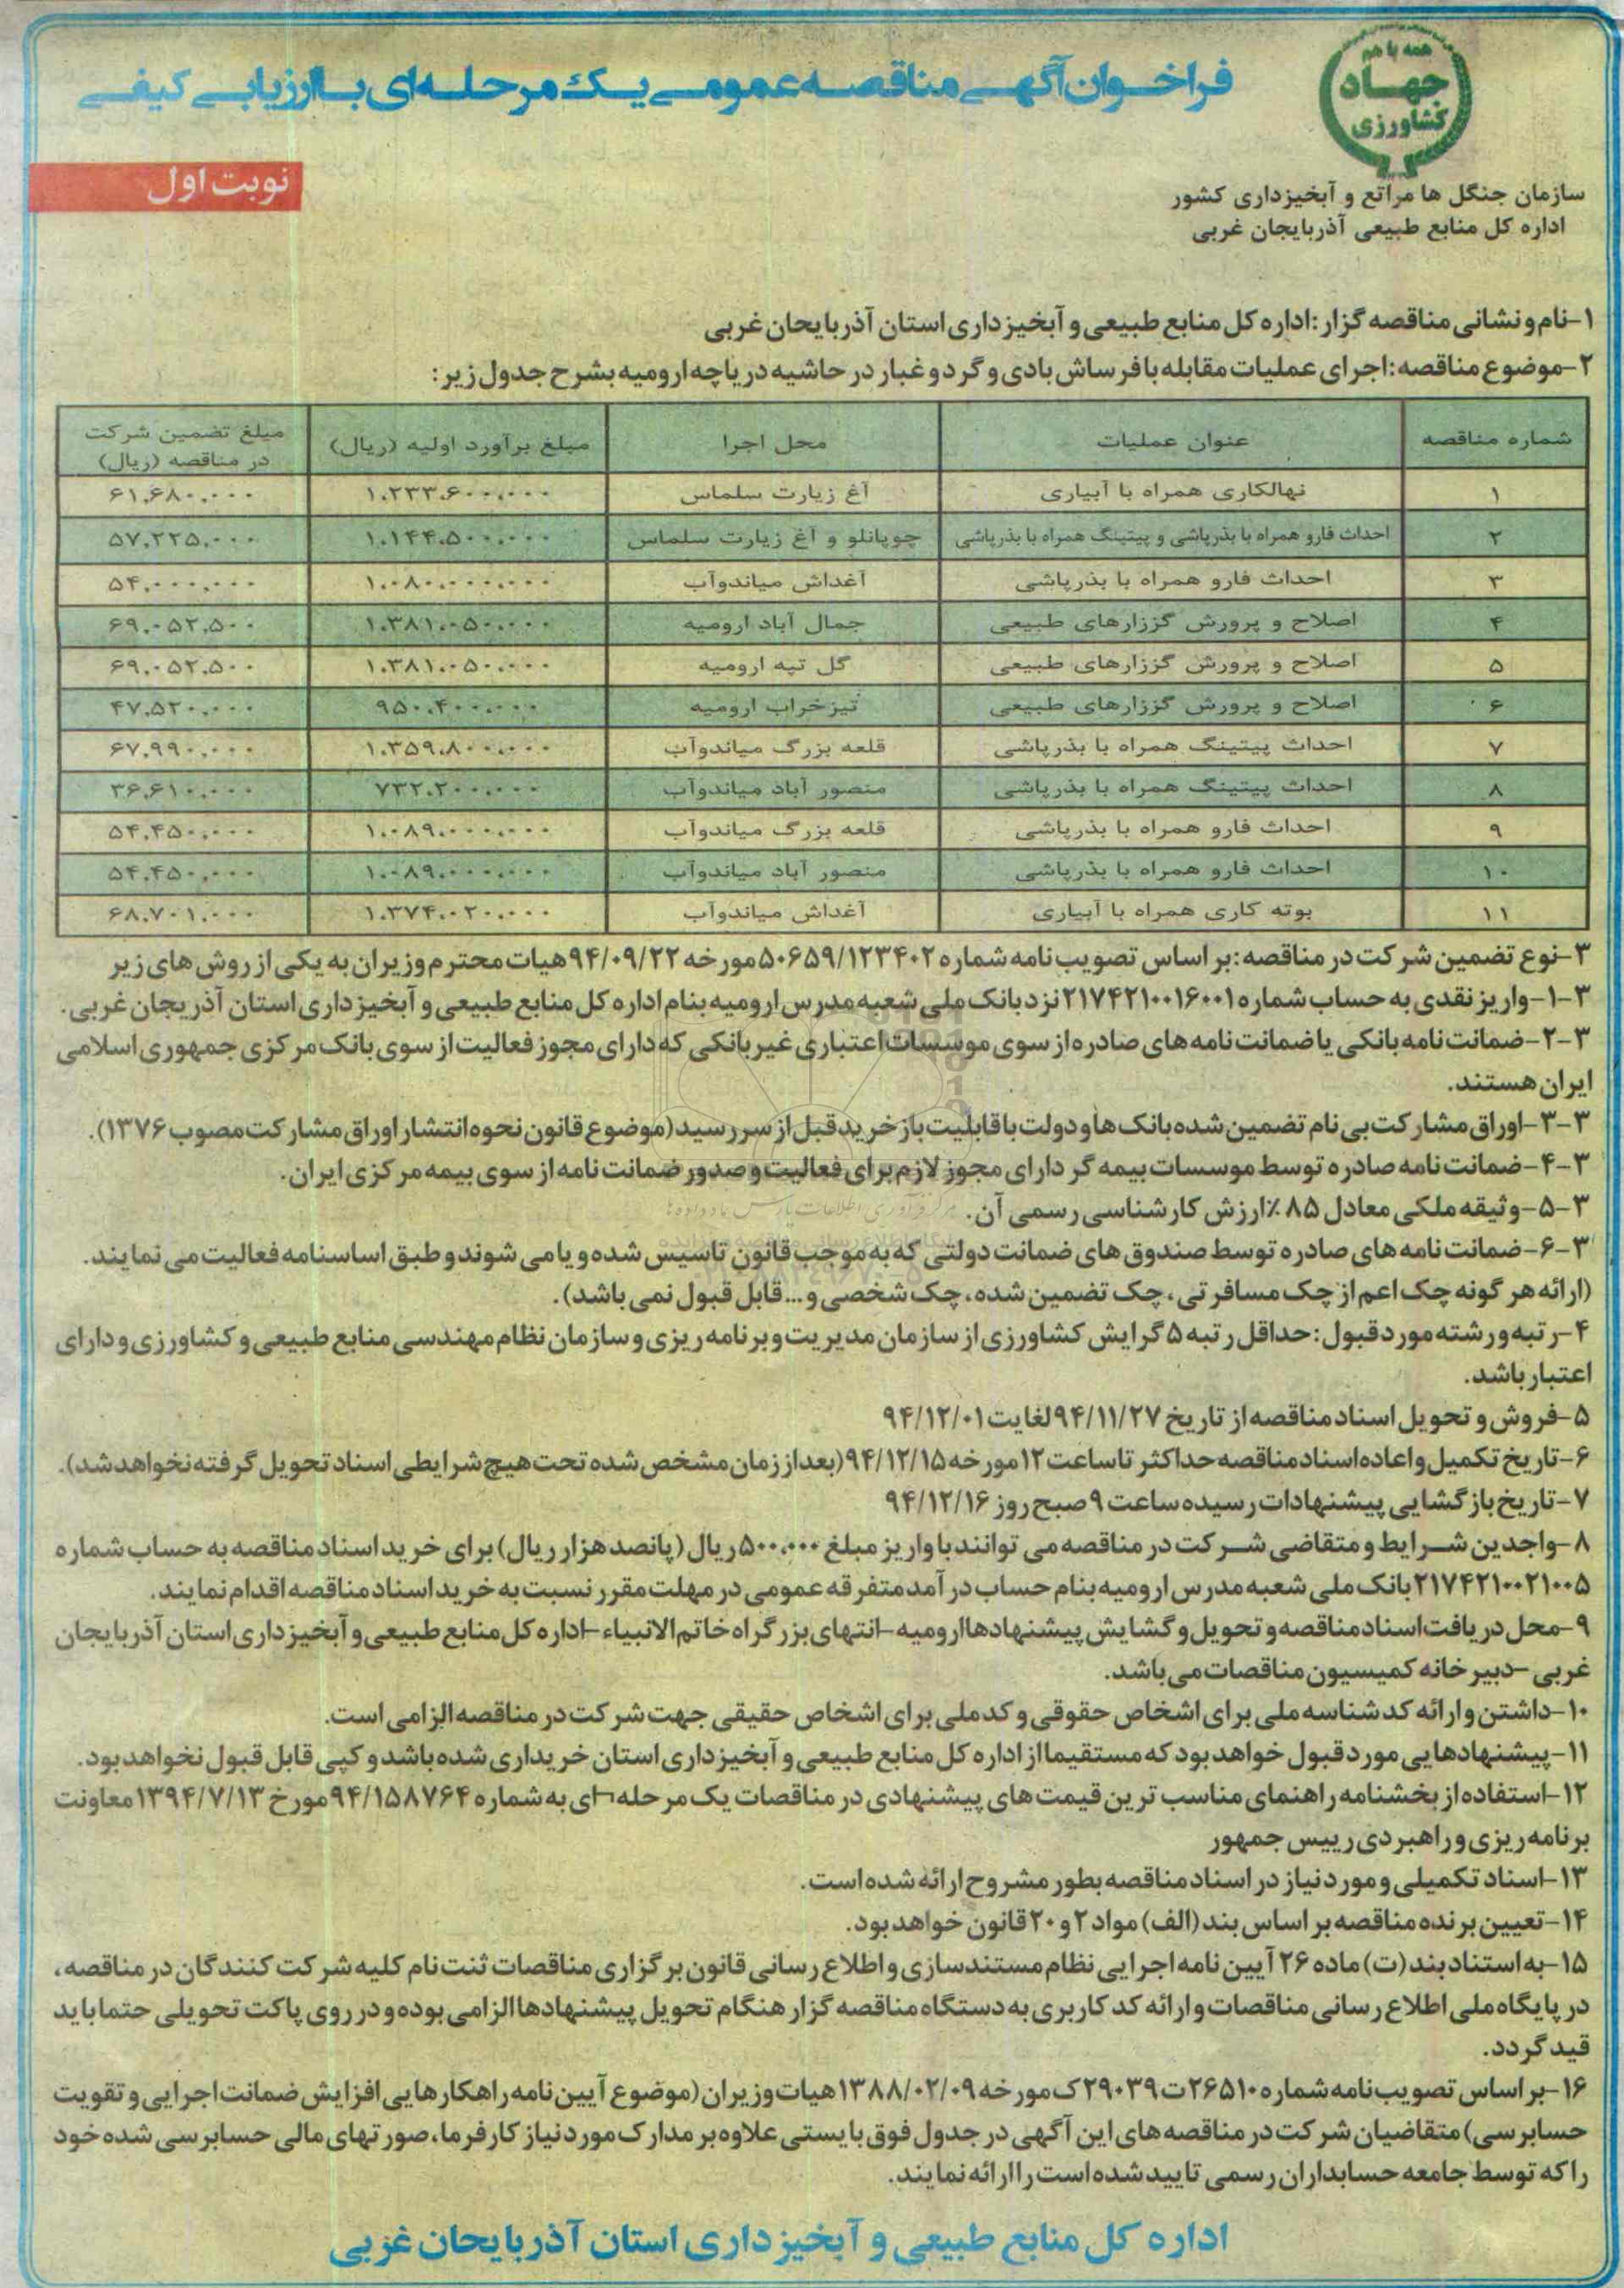 همه با هم
جهاد
کشاورزی
فراخوان آگهی مناقصه عمومی یک مرحله‌ای با ارزیابی کیفی
نوبت اول
سازمان جنگل ها مراتع و آبخیزداری کشور
اداره کل منابع طبیعی آذربایجان غربی
۱-نام و نشانی مناقصه گزار: اداره کل منابع طبیعی و آبخیزداری استان آذربایجان غربی
۲-موضوع مناقصه: اجرای عملیات مقابله با فرساش بادی و گرد و غبار در حاشیه دریاچه ارومیه بشرح جدول زیر:
شماره مناقصه | عنوان عملیات | محل اجرا | مبلغ برآورد اولیه (ریال) | مبلغ تضمین شرکت در مناقصه (ریال)
۱ | نهالکاری همراه با آبیاری | آغ زیارت سلماس | ۱.۲۳۳.۶۰۰.۰۰۰ | ۶۱.۶۸۰.۰۰۰
۲ | احداث فارو همراه با بذرپاشی و پیتینگ همراه با بذرپاشی | چوپانلو و آغ زیارت سلماس | ۱.۱۴۴.۵۰۰.۰۰۰ | ۵۷.۲۲۵.۰۰۰
۳ | احداث فارو همراه با بذرپاشی | آغداش میاندوآب | ۱.۰۸۰.۰۰۰.۰۰۰ | ۵۴.۰۰۰.۰۰۰
۴ | اصلاح و پرورش گززارهای طبیعی | جمال آباد ارومیه | ۱.۳۸۱.۰۵۰.۰۰۰ | ۶۹.۰۵۲.۵۰۰
۵ | اصلاح و پرورش گززارهای طبیعی | گل تپه ارومیه | ۱.۳۸۱.۰۵۰.۰۰۰ | ۶۹.۰۵۲.۵۰۰
۶ | اصلاح و پرورش گززارهای طبیعی | تیزخراب ارومیه | ۹۵۰.۴۰۰.۰۰۰ | ۴۷.۵۲۰.۰۰۰
۷ | احداث پیتینگ همراه با بذرپاشی | قلعه بزرگ میاندوآب | ۱.۳۵۹.۸۰۰.۰۰۰ | ۶۷.۹۹۰.۰۰۰
۸ | احداث پیتینگ همراه با بذرپاشی | منصور آباد میاندوآب | ۷۳۲.۲۰۰.۰۰۰ | ۳۶.۶۱۰.۰۰۰
۹ | احداث فارو همراه با بذرپاشی | قلعه بزرگ میاندوآب | ۱.۰۸۹.۰۰۰.۰۰۰ | ۵۴.۴۵۰.۰۰۰
۱۰ | احداث فارو همراه با بذرپاشی | منصور آباد میاندوآب | ۱.۰۸۹.۰۰۰.۰۰۰ | ۵۴.۴۵۰.۰۰۰
۱۱ | بوته کاری همراه با آبیاری | آغداش میاندوآب | ۱.۳۷۴.۰۲۰.۰۰۰ | ۶۸.۷۰۱.۰۰۰
۳-نوع تضمین شرکت در مناقصه: بر اساس تصویب نامه شماره ۵۰۶۵۹/۱۲۳۴۰۲ مورخه ۹۴/۰۹/۲۲ هیات محترم وزیران به یکی از روش های زیر
۳-۱-واریز نقدی به حساب شماره ۲۱۷۴۲۱۰۰۱۶۰۰۱ نزد بانک ملی شعبه مدرس ارومیه بنام اداره کل منابع طبیعی و آبخیزداری استان آذریجان غربی.
۳-۲-ضمانت نامه بانکی یا ضمانت نامه های صادره از سوی موسسات اعتباری غیر بانکی که دارای مجوز فعالیت از سوی بانک مرکزی جمهوری اسلامی
ایران هستند.
۳-۳-اوراق مشارکت بی نام تضمین شده بانک ها و دولت با قابلیت باز خرید قبل از سررسید (موضوع قانون نحوه انتشار اوراق مشارکت مصوب ۱۳۷۶).
۳-۴-ضمانت نامه صادره توسط موسسات بیمه گر دارای مجوز لازم برای فعالیت و صدور ضمانت نامه از سوی بیمه مرکزی ایران.
۳-۵-وثیقه ملکی معادل ۸۵٪ ارزش کارشناسی رسمی آن.
۳-۶-ضمانت نامه های صادره توسط صندوق های ضمانت دولتی که به موجب قانون تاسیس شده و یا می شوند و طبق اساسنامه فعالیت می نمایند.
(ارائه هر گونه چک اعم از چک مسافرتی، چک تضمین شده، چک شخصی و... قابل قبول نمی باشد).
۴-رتبه و رشته مورد قبول: حداقل رتبه ۵ گرایش کشاورزی از سازمان مدیریت و برنامه ریزی و سازمان نظام مهندسی منابع طبیعی و کشاورزی و دارای
اعتبار باشد.
۵-فروش و تحویل اسناد مناقصه از تاریخ ۹۴/۱۱/۲۷ لغایت ۹۴/۱۲/۰۱
۶-تاریخ تکمیل و اعاده اسناد مناقصه حداکثر تا ساعت ۱۲ مورخه ۹۴/۱۲/۱۵ (بعد از زمان مشخص شده تحت هیچ شرایطی اسناد تحویل گرفته نخواهد شد).
۷-تاریخ بازگشایی پیشنهادات رسیده ساعت ۹ صبح روز ۹۴/۱۲/۱۶
۸-واجدین شرایط و متقاضی شرکت در مناقصه می توانند با واریز مبلغ ۵۰۰.۰۰۰ ریال (پانصد هزار ریال) برای خرید اسناد مناقصه به حساب شماره
۲۱۷۴۲۱۰۰۲۱۰۰۵ بانک ملی شعبه مدرس ارومیه بنام حساب درآمد متفرقه عمومی در مهلت مقرر نسبت به خرید اسناد مناقصه اقدام نمایند.
۹-محل دریافت اسناد مناقصه و تحویل و گشایش پیشنهادها ارومیه -انتهای بزرگراه خاتم الانبیاء -اداره کل منابع طبیعی و آبخیزداری استان آذربایجان
غربی -دبیرخانه کمیسیون مناقصات می باشد.
۱۰-داشتن و ارائه کد شناسه ملی برای اشخاص حقوقی و کد ملی برای اشخاص حقیقی جهت شرکت در مناقصه الزامی است.
۱۱-پیشنهادهایی مورد قبول خواهد بود که مستقیما از اداره کل منابع طبیعی و آبخیزداری استان خریداری شده باشد و کپی قابل قبول نخواهد بود.
۱۲-استفاده از بخشنامه راهنمای مناسب ترین قیمت های پیشنهادی در مناقصات یک مرحله ای به شماره ۹۴/۱۵۸۷۶۴ مورخ ۱۳۹۴/۷/۱۳ معاونت
برنامه ریزی و راهبردی رییس جمهور
۱۳-اسناد تکمیلی و مورد نیاز در اسناد مناقصه بطور مشروح ارائه شده است.
۱۴-تعیین برنده مناقصه بر اساس بند (الف) مواد ۲ و ۲۰ قانون خواهد بود.
۱۵-به استناد بند (ت) ماده ۲۶ آیین نامه اجرایی نظام مستندسازی و اطلاع رسانی قانون برگزاری مناقصات ثنت نام کلیه شرکت کنندگان در مناقصه،
در پایگاه ملی اطلاع رسانی مناقصات و ارائه کد کاربری به دستگاه مناقصه گزار هنگام تحویل پیشنهادها الزامی بوده و در روی پاکت تحویلی حتما باید
قید گردد.
۱۶-بر اساس تصویب نامه شماره ۲۶۵۱۰ ت ۲۹۰۳۹ ک مورخه ۱۳۸۸/۰۲/۰۹ هیات وزیران (موضوع آیین نامه راهکارهایی افزایش ضمانت اجرایی و تقویت
حسابرسی) متقاضیان شرکت در مناقصه های این آگهی در جدول فوق بایستی علاوه بر مدارک مورد نیاز کارفرما، صورتهای مالی حسابرسی شده خود
را که توسط جامعه حسابداران رسمی تایید شده است را ارائه نمایند.
اداره کل منابع طبیعی و آبخیزداری استان آذربایجان غربی